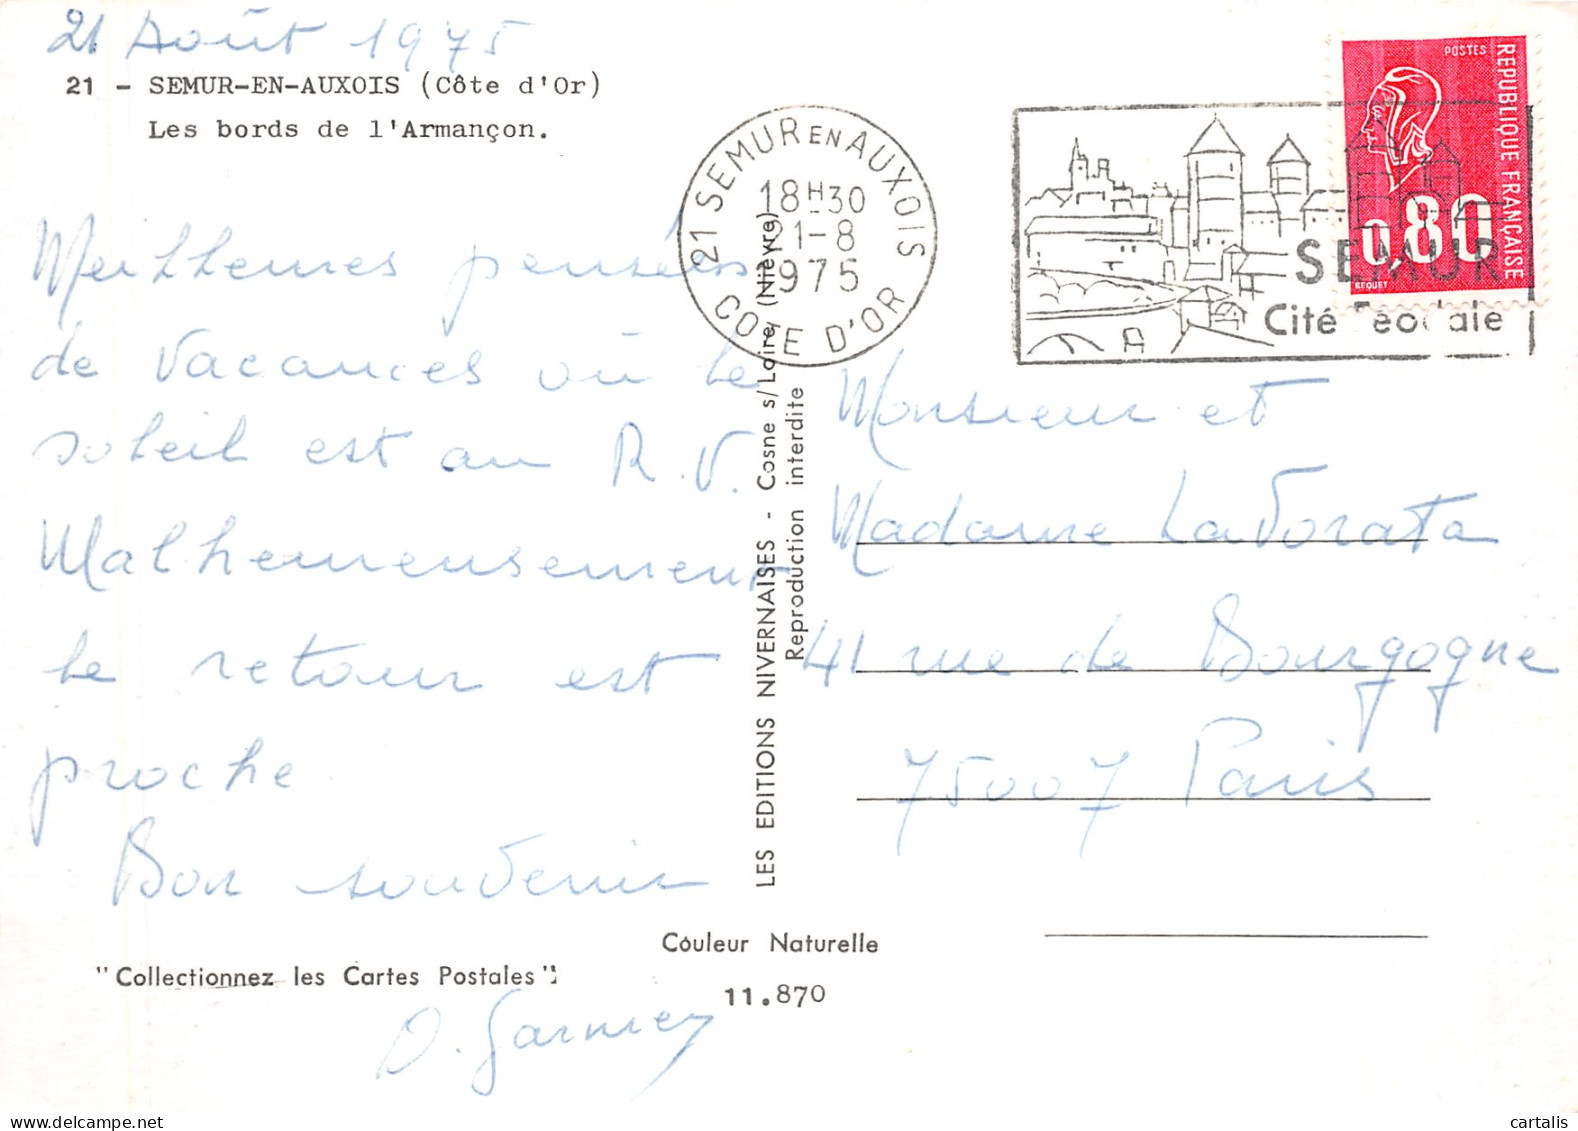 21 Août 1975
21 - SEMUR-EN-AUXOIS (Côte d'Or)
Les bords de l'Armançon.
Meilleures pensées
de vacances où le
soleil est au R.V.
Malheureusement
le retour est
proche
Bon souvenir
D. Garnier
"Collectionnez les Cartes Postales"
Couleur Naturelle
11.870
LES EDITIONS NIVERNAISES - Cosne s/Loire (Nièvre)
Reproduction interdite
21 SEMUR EN AUXOIS
18H30
21-8
1975
COTE D'OR
SEMUR
Cité Féodale
POSTES
REPUBLIQUE FRANÇAISE
0,80
BEQUET
Monsieur et
Madame Lavorata
41 rue de Bourgogne
75007 Paris
delcampe.net
cartalis